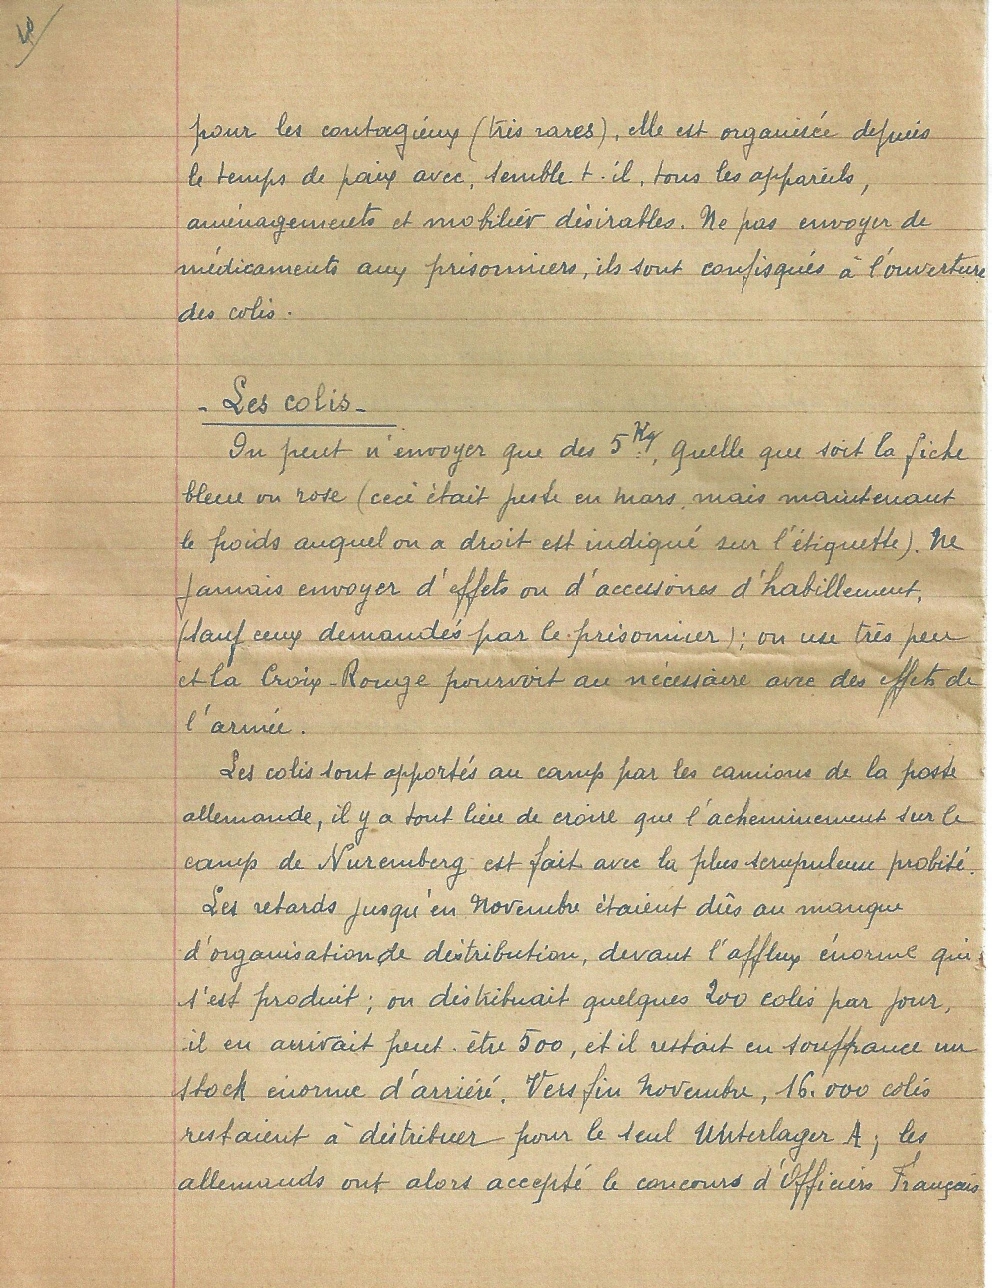 pour les contagieux (très rares), elle est organisée depuis
le temps de paix avec, semble t-il, tous les appareils,
aménagements et mobilier désirables. Ne pas envoyer de
médicaments aux prisonniers, ils sont confisqués à l'ouverture
des colis.
- Les colis -
On peut n'envoyer que des 5 Kg, quelle que soit la fiche
bleue ou rose (ceci était juste en mars, mais maintenant
le poids auquel on a droit est indiqué sur l'étiquette). Ne
jamais envoyer d'effets ou d'accessoires d'habillement,
(sauf ceux demandés par le prisonnier); on use très peu
et la Croix-Rouge pourvoit au nécessaire avec des effets de
l'armée.
Les colis sont apportés au camp par les camions de la poste
allemande, il y a tout lieu de croire que l'acheminement sur le
camp de Nuremberg est fait avec la plus scrupuleuse probité.
Les retards jusqu'en Novembre étaient dûs au manque
d'organisation de distribution, devant l'afflux énorme qui
s'est produit; on distribuait quelques 200 colis par jour,
il en arrivait peut-être 500, et il restait en souffrance un
stock énorme d'arriéré. Vers fin Novembre, 16.000 colis
restaient à distribuer pour le seul Unterlager A; les
allemands ont alors accepté le concours d'Officiers Français